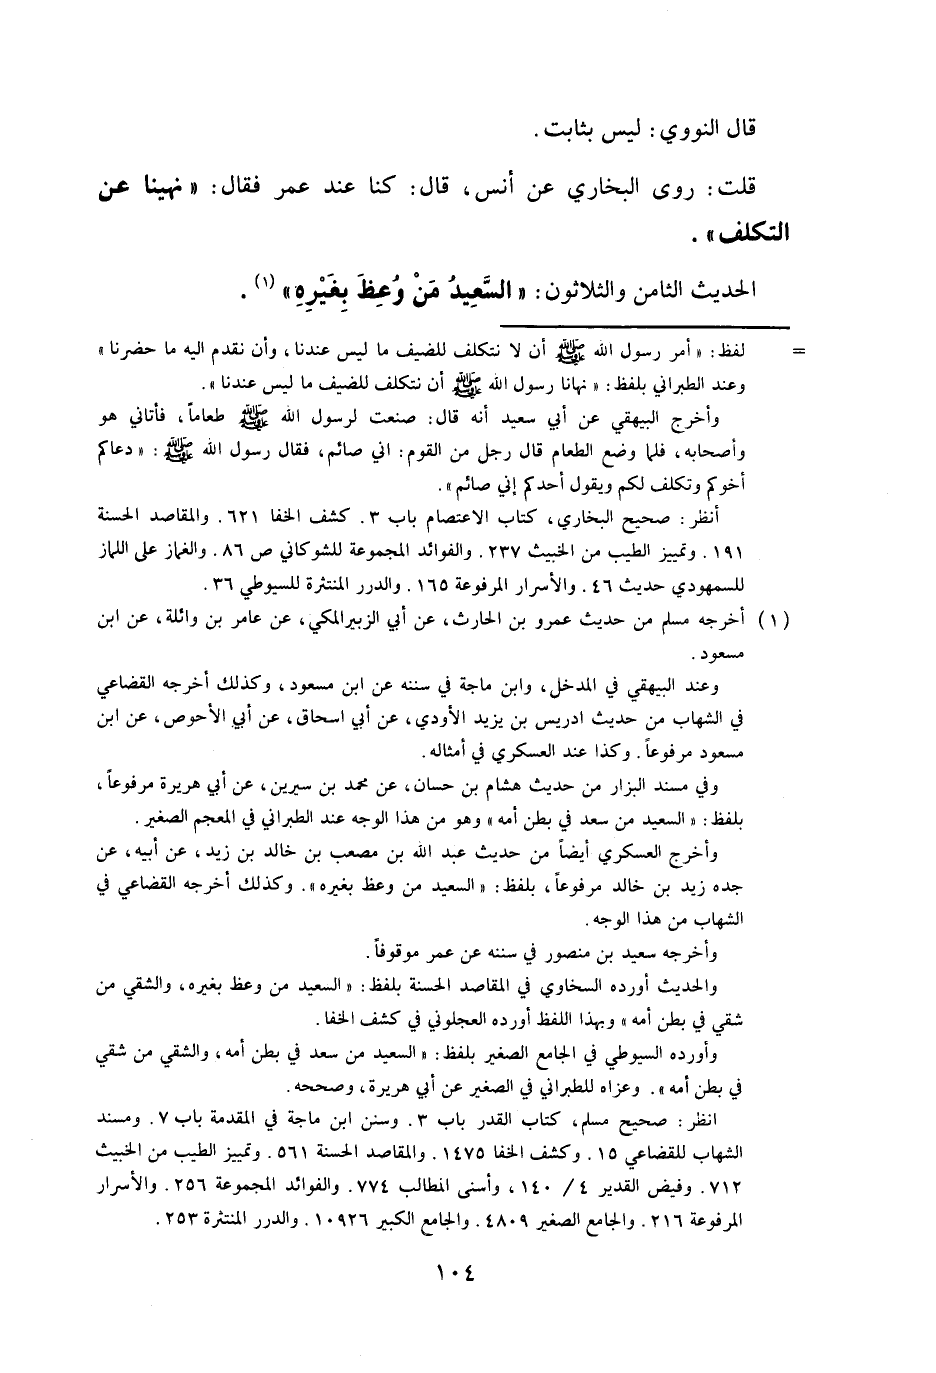 قال النووي : ليس بثابت .
قلت : روى البخاري عن أنس ، قال : كنا عند عمر فقال : « نهينا عن
التكلف » .
الحديث الثامن والثلاثون : « السَّعِيدُ مَنْ وُعِظَ بِغَيْرِهِ » (١) .
= لفظ : « أمر رسول الله ﷺ أن لا نتكلف للضيف ما ليس عندنا ، وأن نقدم اليه ما حضرنا »
وعند الطبراني بلفظ : « نهانا رسول الله ﷺ أن نتكلف للضيف ما ليس عندنا » .
وأخرج البيهقي عن أبي سعيد أنه قال : صنعت لرسول الله ﷺ طعاماً ، فأتاني هو
وأصحابه ، فلما وضع الطعام قال رجل من القوم : اني صائم ، فقال رسول الله ﷺ : « دعاكم
أخوكم وتكلف لكم ويقول أحدكم إني صائم » .
أنظر : صحيح البخاري ، كتاب الاعتصام باب ٣ . كشف الخفا ٦٢١ . والمقاصد الحسنة
١٩١ . وتمييز الطيب من الخبيث ٢٣٧ . والفوائد المجموعة للشوكاني ص ٨٦ . والغماز على اللماز
للسمهودي حديث ٤٦ . والأسرار المرفوعة ١٦٥ . والدرر المنتثرة للسيوطي ٣٦ .
(١) أخرجه مسلم من حديث عمرو بن الحارث ، عن أبي الزبير المكي ، عن عامر بن واثلة ، عن ابن
مسعود .
وعند البيهقي في المدخل ، وابن ماجة في سننه عن ابن مسعود ، وكذلك أخرجه القضاعي
في الشهاب من حديث ادريس بن يزيد الأودي ، عن أبي اسحاق ، عن أبي الأحوص ، عن ابن
مسعود مرفوعاً . وكذا عند العسكري في أمثاله .
وفي مسند البزار من حديث هشام بن حسان ، عن محمد بن سيرين ، عن أبي هريرة مرفوعاً ،
بلفظ : « السعيد من سعد في بطن أمه » وهو من هذا الوجه عند الطبراني في المعجم الصغير .
وأخرج العسكري أيضاً من حديث عبد الله بن مصعب بن خالد بن زيد ، عن أبيه ، عن
جده زيد بن خالد مرفوعاً ، بلفظ : « السعيد من وعظ بغيره » . وكذلك أخرجه القضاعي في
الشهاب من هذا الوجه .
وأخرجه سعيد بن منصور في سننه عن عمر موقوفاً .
والحديث أورده السخاوي في المقاصد الحسنة بلفظ : « السعيد من وعظ بغيره ، والشقي من
شقي في بطن أمه » وبهذا اللفظ أورده العجلوني في كشف الخفا .
وأورده السيوطي في الجامع الصغير بلفظ : « السعيد من سعد في بطن أمه ، والشقي من شقي
في بطن أمه » . وعزاه للطبراني في الصغير عن أبي هريرة ، وصححه .
انظر : صحيح مسلم ، كتاب القدر باب ٣ . وسنن ابن ماجة في المقدمة باب ٧ . ومسند
الشهاب للقضاعي ١٥ . وكشف الخفا ١٤٧٥ . والمقاصد الحسنة ٥٦١ . وتمييز الطيب من الخبيث
٧١٢ . وفيض القدير ٤ / ١٤٠ ، وأسنى المطالب ٧٧٤ . والفوائد المجموعة ٢٥٦ . والأسرار
المرفوعة ٢١٦ . والجامع الصغير ٤٨٠٩ . والجامع الكبير ١٠٩٢٦ . والدرر المنتثرة ٢٥٣ .
١٠٤